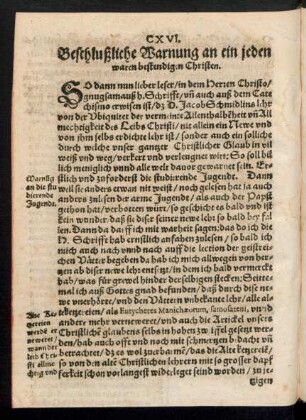 CXVI.
Beschlußliche Warnung an ein jeden
waren bestendigen Christen.
SO dann nun lieber leser/ in dem Herren Christo/
gnugsamauß h. Schrifft/ vñ auch auß dem Cate
chismo erwisen ist/ dz D. Jacob Schmidlins lehr
von der Ubiquitet der vermeinte Allenthalbẽheit vñ All
mechtigkeit des Leibs Christi/ nit allein ein Newe und
von jhm selbs erdicht lehr ist/ sonder auch ein solliche/
durch welche unser gantzer Christlicher Glaub in vil
weiß und weg/ verkert und verleugnet wirt; So soll bil
lich meniglich unnd alle welt davor gewarnet sein. Er⸗
Warnũg
an die stu
dierende
Jugende.
lich und zufordetst die studierende Jugende. Dann
die weil sie anders etwan nit weißt/ noch gelesen hat ja auch
anders zulesen der arme Jugende/ als auch des Papst
gehon hat/ verbotten würt/ so geschicht es bald und ist
kein wunder/ daß sie diser seiner newe lehr so bald bey fal
len. Dann da darff ich mit warheit sagen: das do ich die
H. Schrifft hab ernstlich anfahen zulesen/ so bald ich
mich auch nach unnd nach auff die lection der geistrei⸗
chen Väter begeben da hab ich mich allwegen von her⸗
tzen ab diser newe lehr entsetzt/ in dem ich bald vermerckt
hab/ was für grewel hinder den selbigen stecken: Seitte⸗
mal ich auß Gottes gnad befunden/ daß durch dise ne⸗
we unerhörte/ und den Vättern unbekante lehr/ alle al⸗
te Ketzereien/ als Eutychetes Manichæorum, samosateni, unnd
andere mehr vernewret/ und auch die Artickel unsers
Christliche glaubens selbs in hohen zwiffel gesetzt wer⸗
den/ hab auch offt und noch mit schmertzen bedacht vñ
betrachtet/ dz es wol zuerbarmẽ/ das die Alte ketzereiẽ/
so von den altẽ Christlichen lehrern mit so grosser dapf
ferkeit schon vorlangest widerleget sind worden/ zu je⸗
tzigen